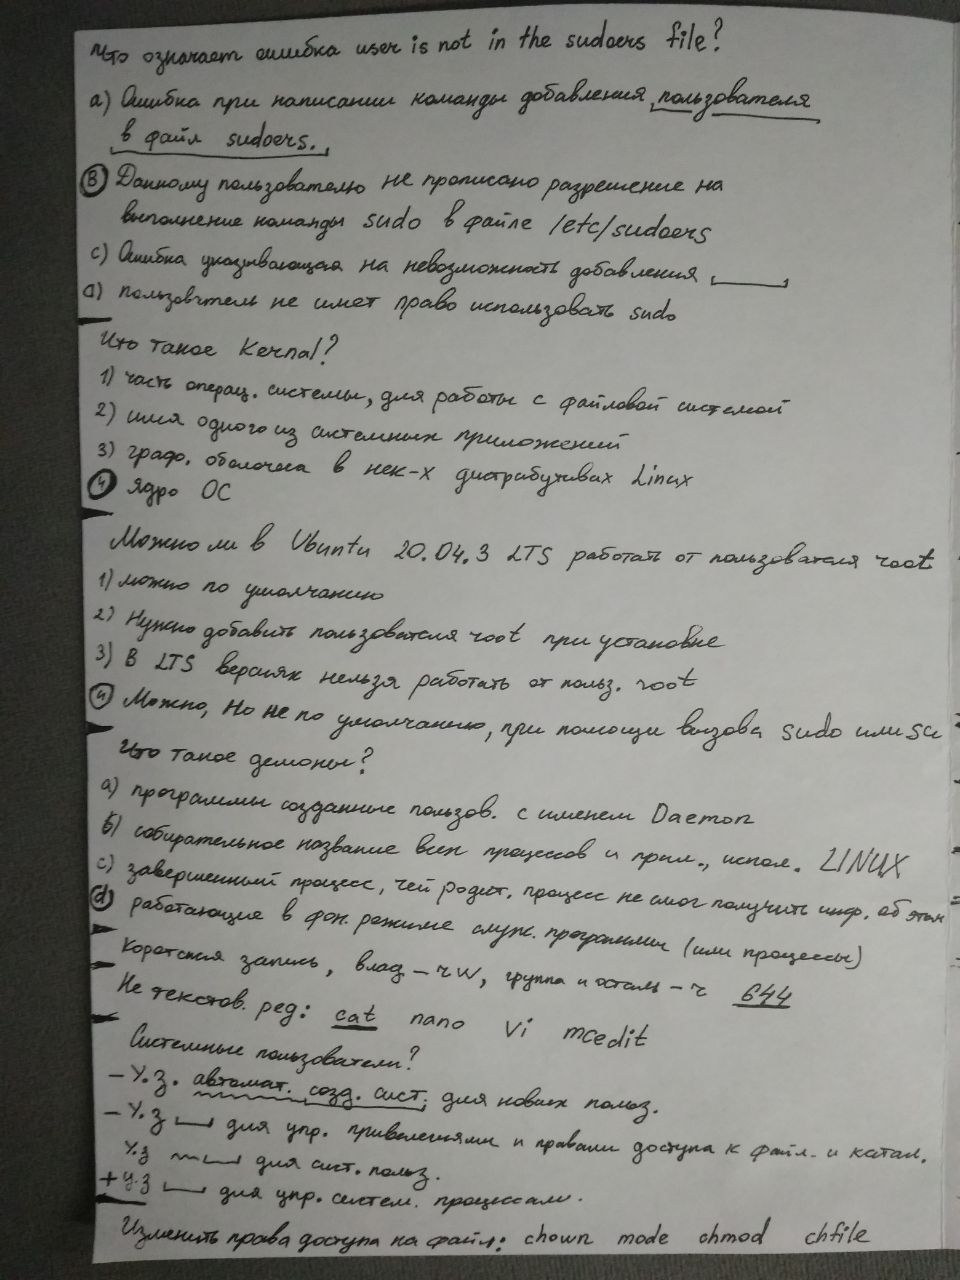 Что означает ошибка user is not in the sudoers file?
a) Ошибка при написании команды добавления пользователя
в файл sudoers.
B Данному пользователю не прописано разрешение на
выполнение команды sudo в файле /etc/sudoers
c) Ошибка указывающая на невозможность добавления
d) пользователь не имет право использовать sudo
Что такое Kernal?
1) часть операц. системы, для работы с файловой системой
2) имя одного из системных приложений
3) граф. оболочка в нек-х дистрибутивах Linux
4 ядро ОС
Можно ли в Ubuntu 20.04.3 LTS работать от пользователя root
1) можно по умолчанию
2) Нужно добавить пользователя root при установке
3) В LTS версиях нельзя работать от польз. root
4 Можно, но не по умолчанию, при помощи вызова sudo или su
Что такое демоны?
a) программы созданные пользов. с именем Daemon
б) собирательное название всех процессов и прил., испол. LINUX
c) завершенный процесс, чей родит. процесс не смог получить инф. об этом
d работающие в фон. режиме служ. программы (или процессы)
Короткая запись, влад - rw, группа и осталь - r 644
Не текстов. ред: cat nano vi mcedit
Системные пользователи?
- У.з. автомат. созд. сист. для новых польз.
- У.з для упр. привелегиями и правами доступа к файл. и катал.
У.з для сист. польз.
+ У.з для упр. систем. процессами.
Изменить права доступа на файл: chown mode chmod chfile